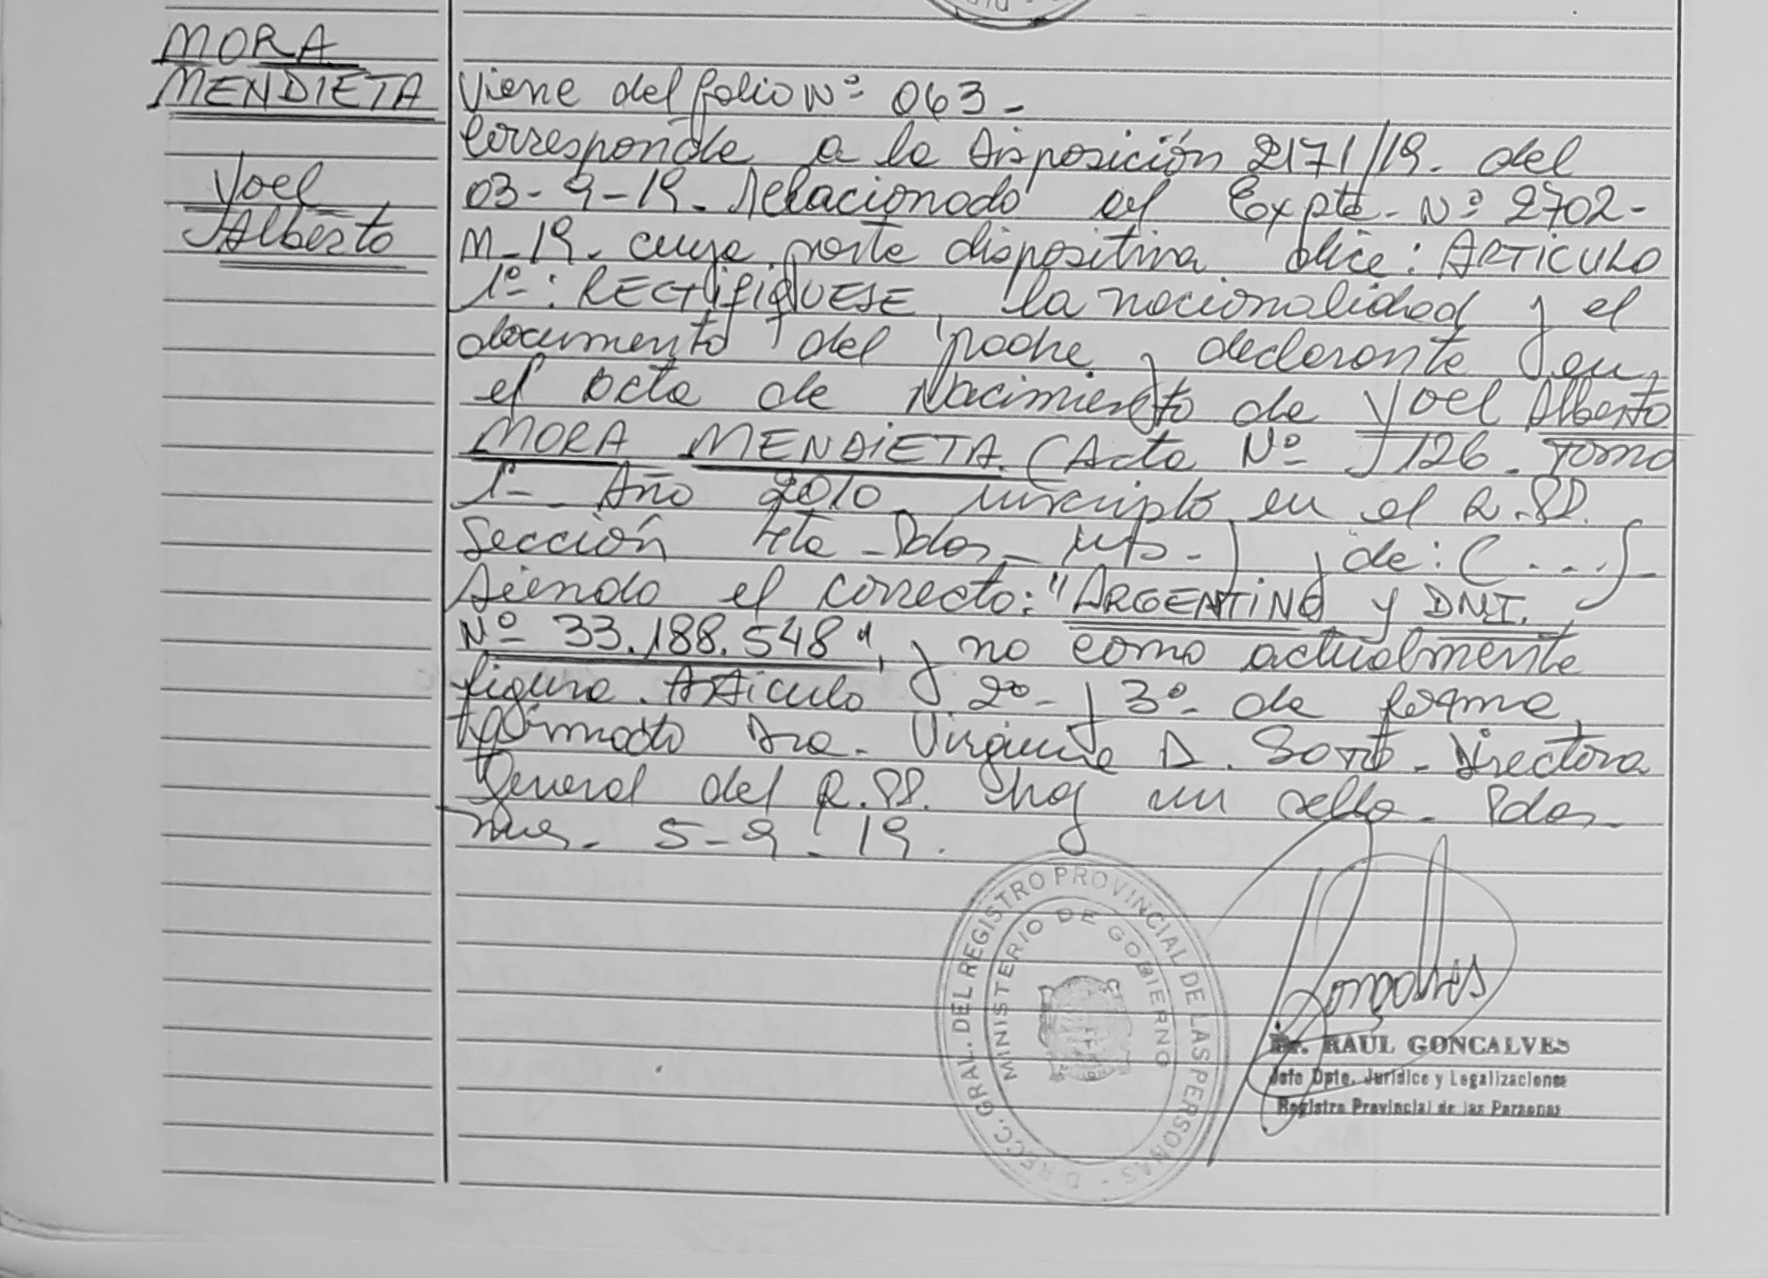 MORA
MENDIETA
Yoel
Alberto
Viene del folio Nº 063-
Corresponde a la Disposición 2171/19. del
03-9-19. Relacionado al Expte. Nº 2702-
M-19. cuya parte dispositiva dice: ARTICULO
1º: RECTIFIQUESE, la nacionalidad y el
documento del padre y declarante en
el acta de Nacimiento de Yoel Alberto
MORA MENDIETA. (Acta Nº 126. Tomo
1º- Año 2010, inscripto en el R.PP.
Sección 4ta - Pdas - Mnes.), de: (...)-
Siendo el correcto: "ARGENTINO y DNI.
Nº 33.188.548", y no como actualmente
figura. Articulo 2º- y 3º- de forma,
firmado Dra. Virginia D. Soto - Directora
General del R.PP. Hay un sello. Pdas.
Mnes. 5-9-19.
DIRECC. GRAL. DEL REGISTRO PROVINCIAL DE LAS PERSONAS -
MINISTERIO DE GOBIERNO
Goncalves
Dr. RAUL GONCALVES
Jefe Dpto. Jurídico y Legalizaciones
Registro Provincial de las Personas